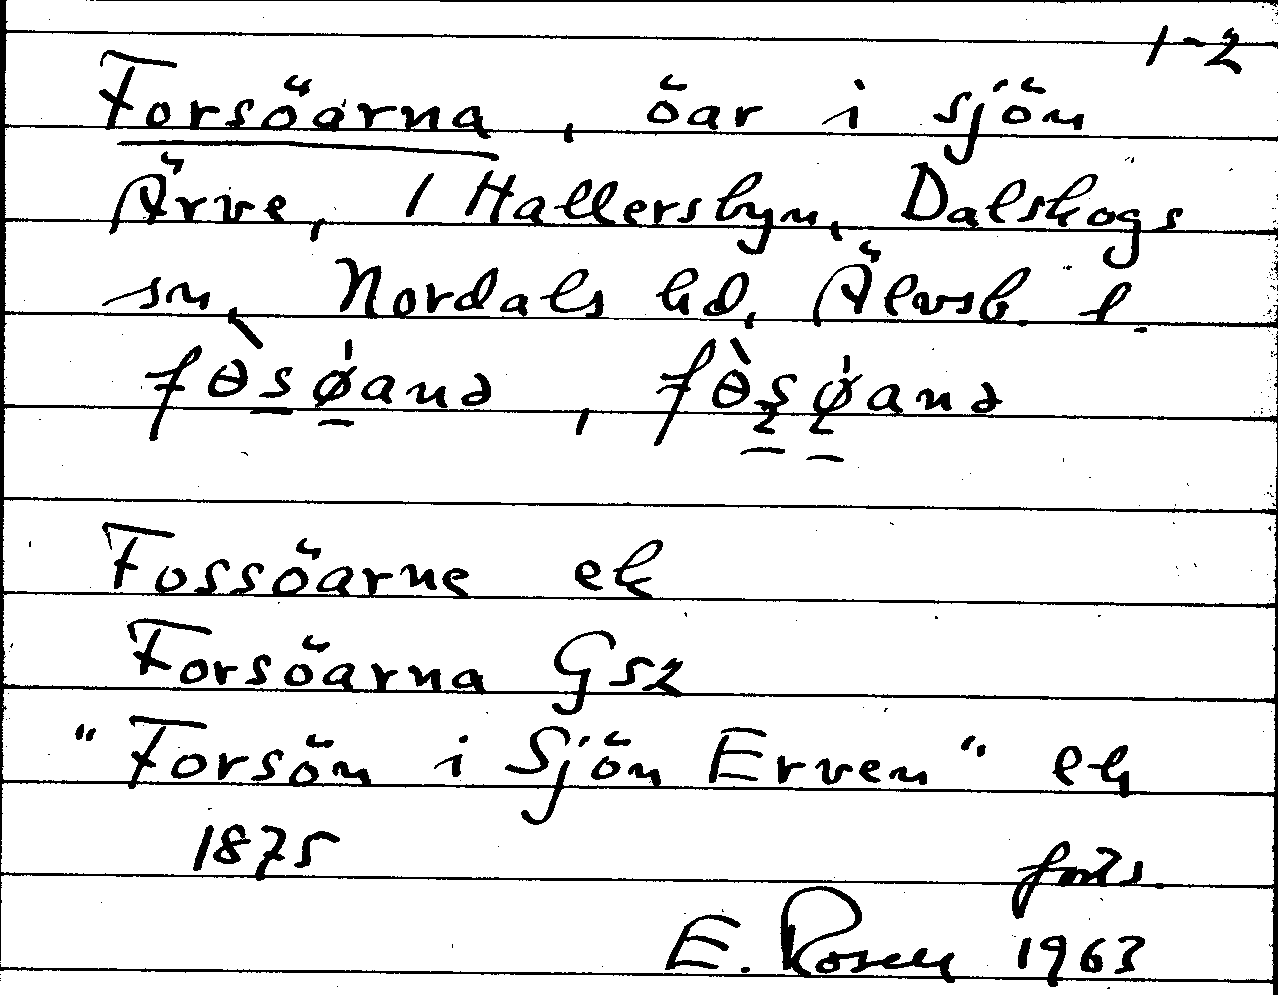 1-2
Forsöarna, öar i sjön
Ärve, 1 Hallersbyn, Dalskogs
sn, Nordals hd, Älvsb. l.
fɵ̀sǿanə, fɵ̀sǿanə
Fossöarne ek
Forsöarna Gsz
"Forsön i Sjön Erven" ek
1875
forts.
E. Rosen 1963